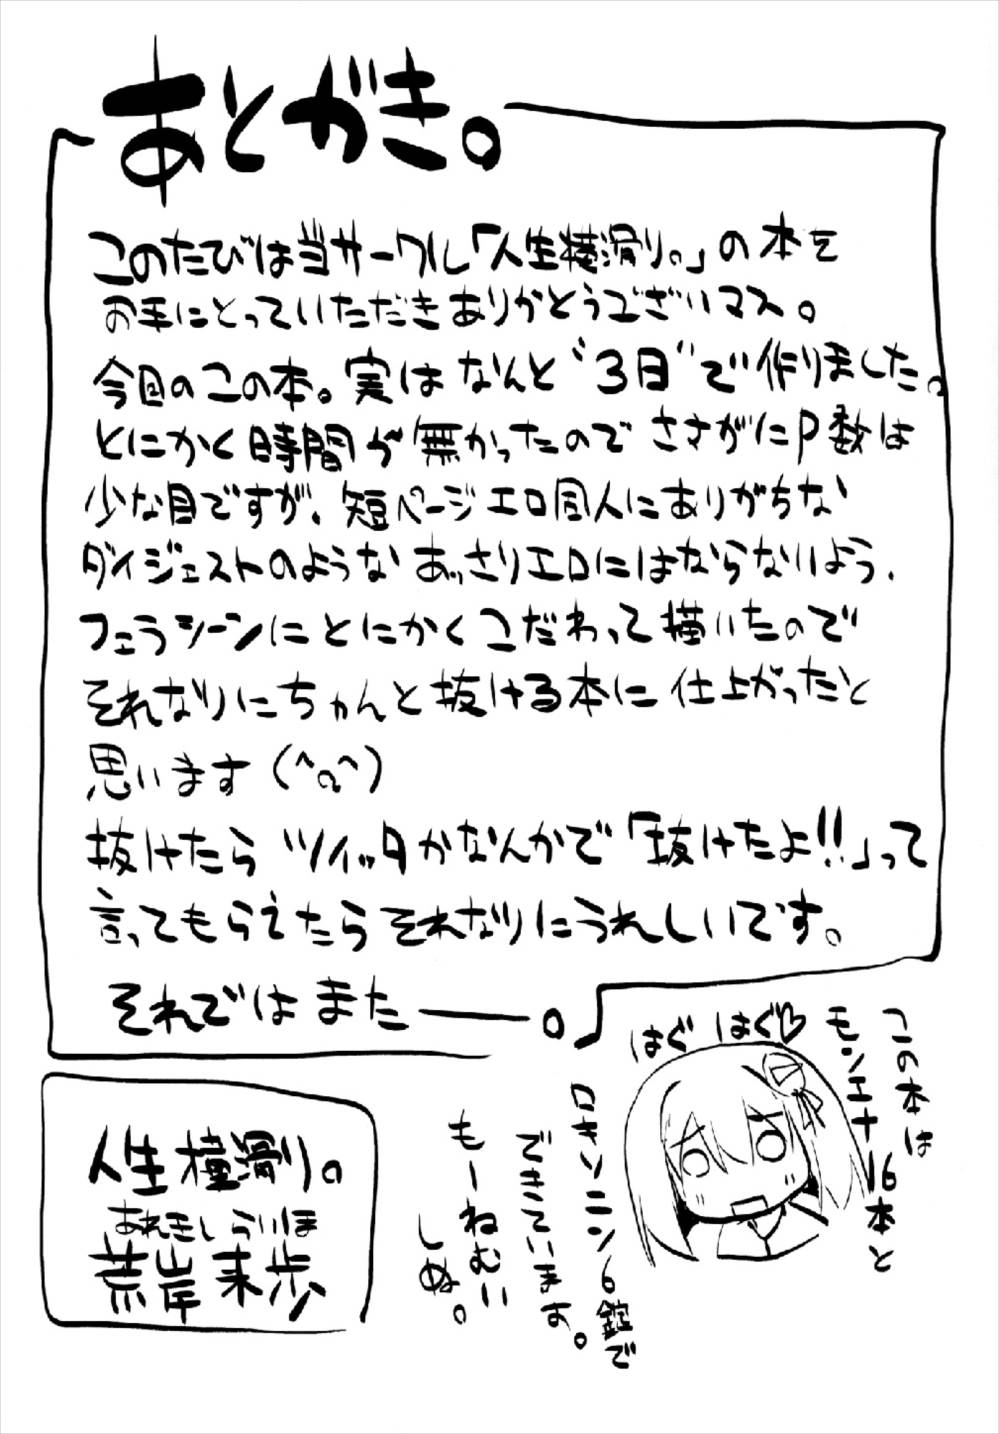 あとがき。
このたびは当サークル「人生横滑り。」の本を
お手にとっていただきありがとうございマス。
今回のこの本。実はなんと“3日”で作りました。
とにかく時間が無かったのでさすがにP数は
少な目ですが、短ページエロ同人にありがちな
ダイジェストのようなあっさりエロにはならないよう、
フェラシーンにとにかくこだわって描いたので
それなりにちゃんと抜ける本に仕上がったと
思います(^q^)
抜けたらツイッタかなんかで「抜けたよ!!」って
言ってもらえたらそれなりにうれしいです。
それではまたーーー。
はぐはぐ♡
この本は
モンエナ16本と
ロキソニン6錠で
できています。
もーねむい
しぬ。
人生横滑り。
あれきしらいほ
荒岸来歩